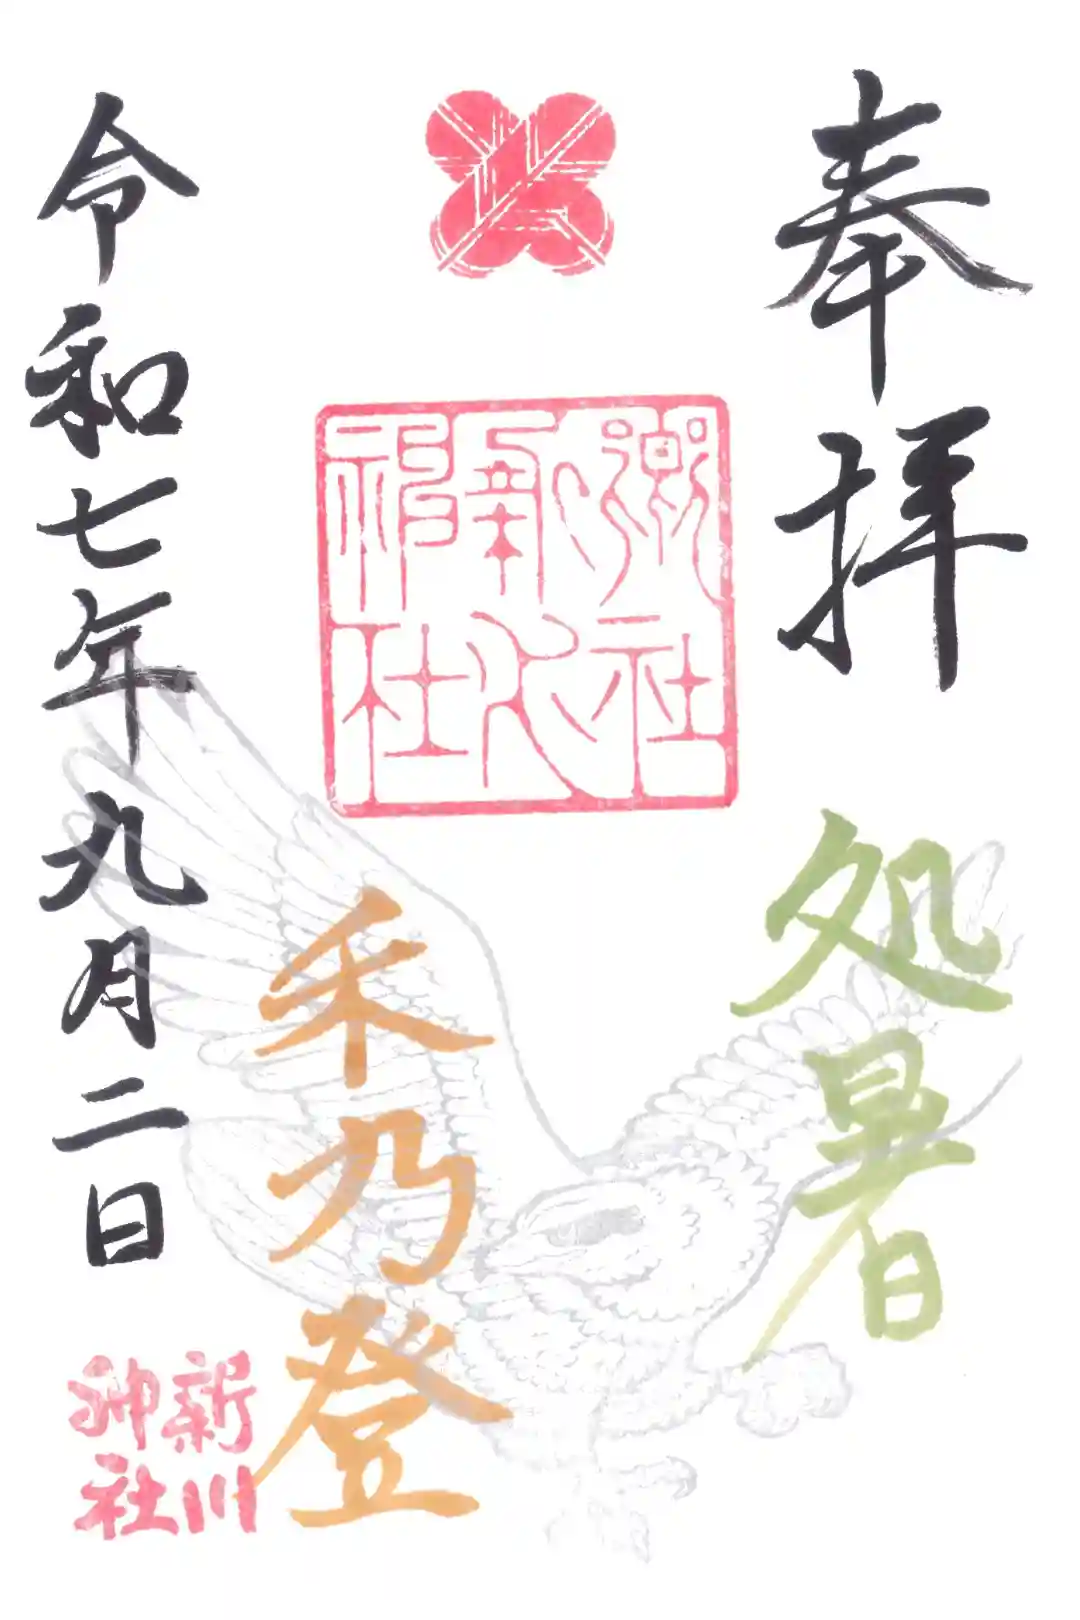 奉拝
処暑
社
新川
神社
禾乃登
令和七年九月二日
新川
神社